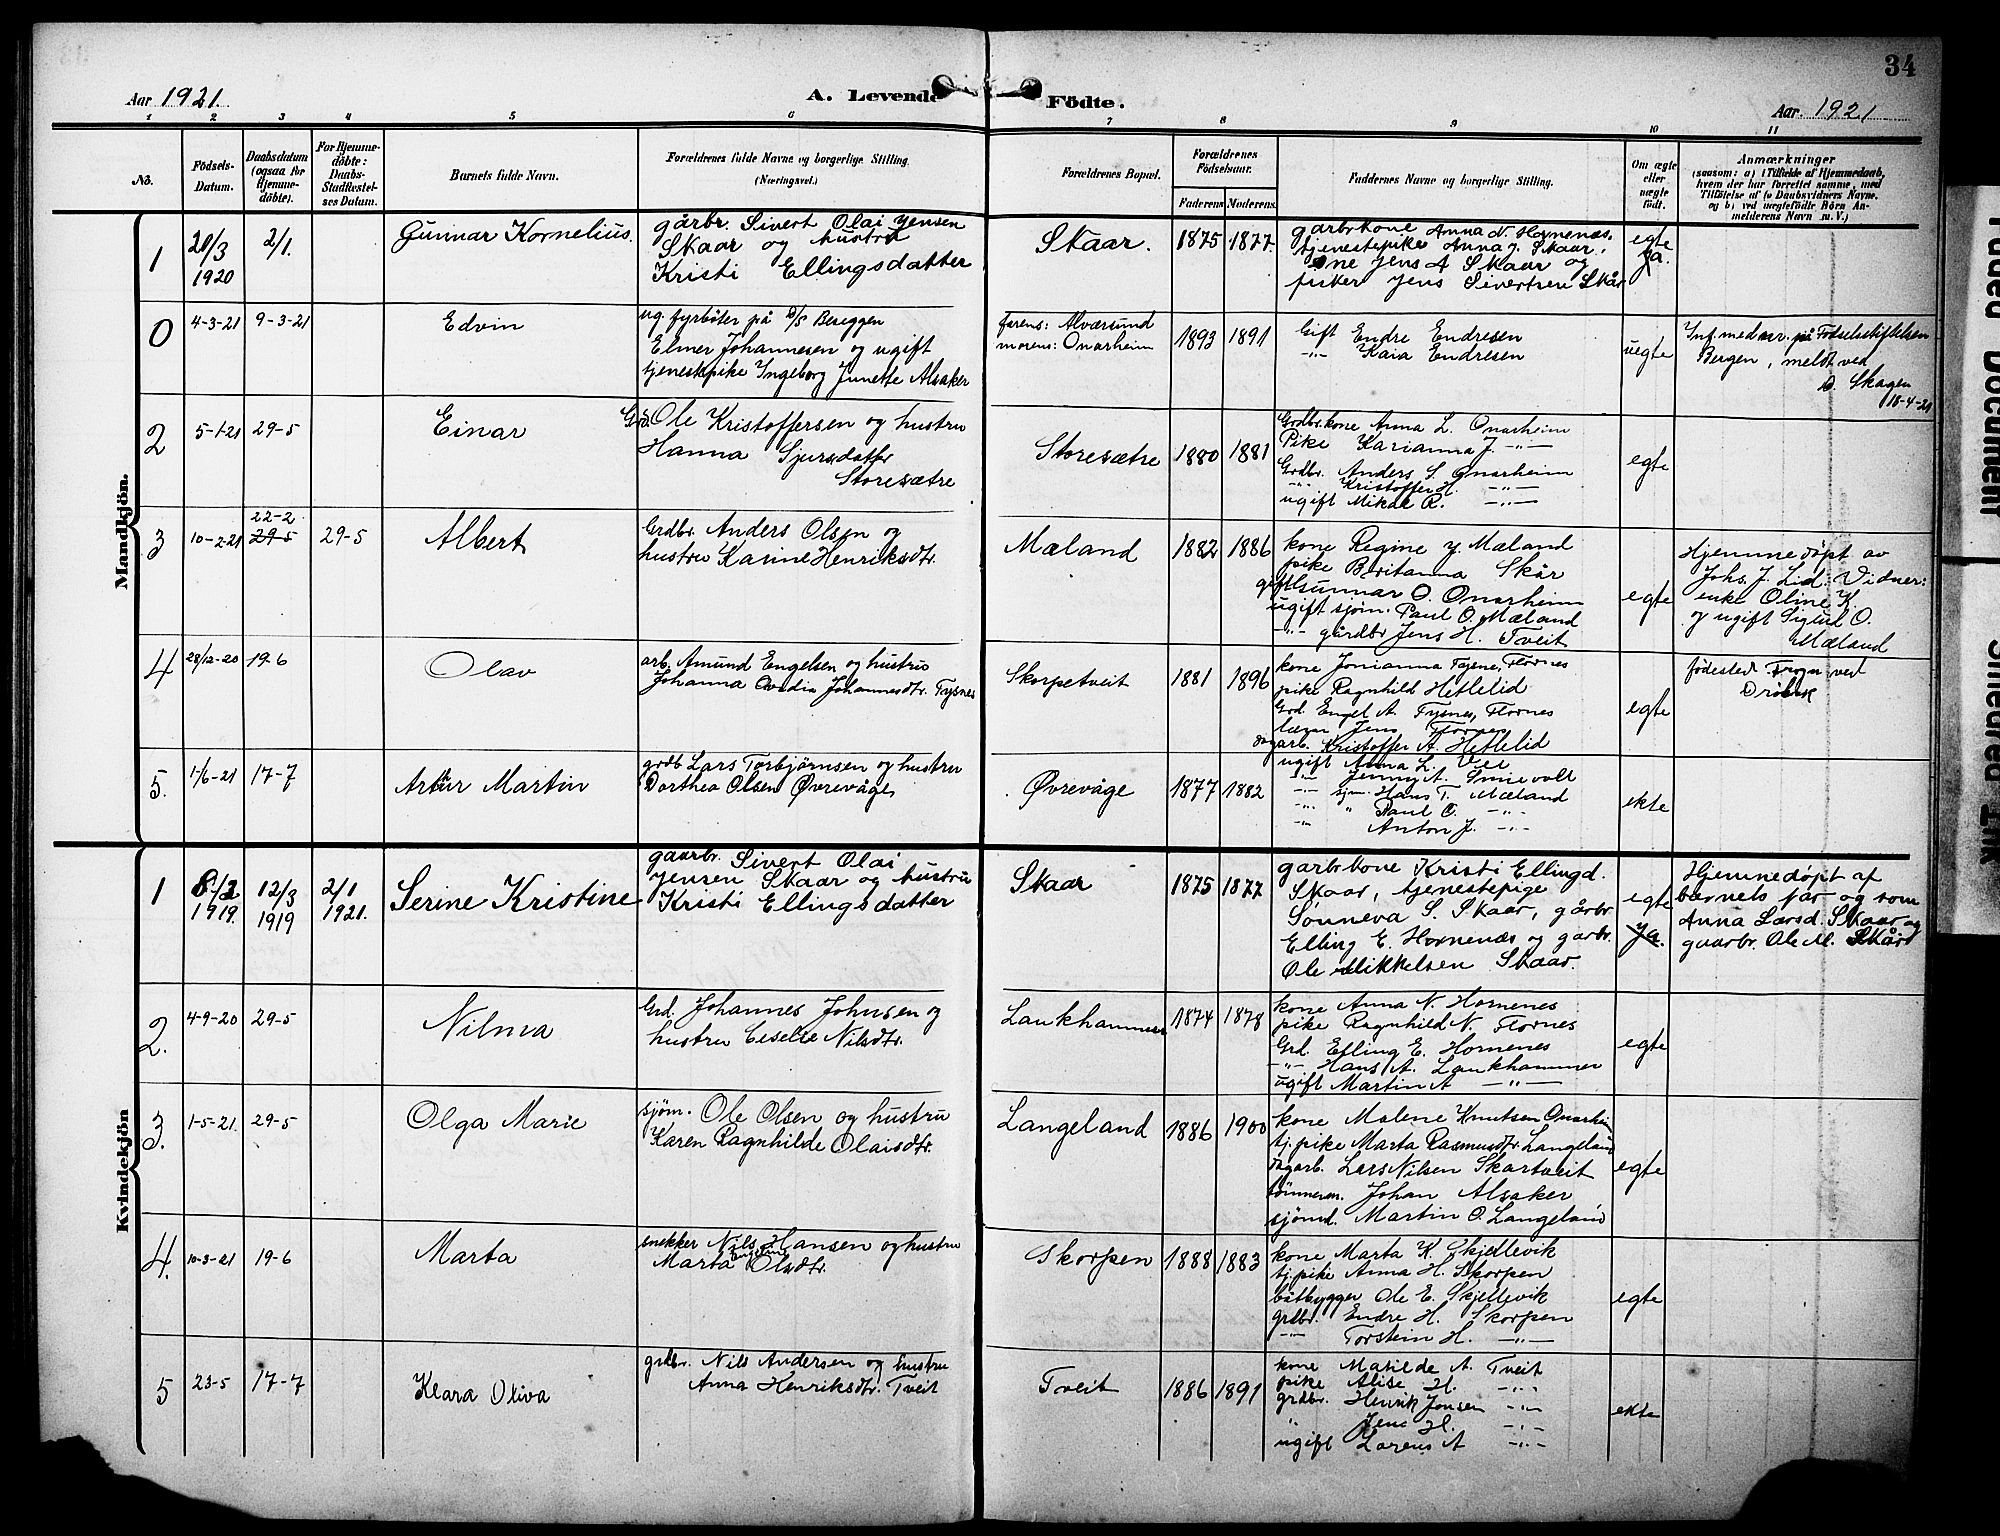 34
Aar 1921.
A. Levende Födte.
Aar 1921
1 2 3 4 5 6 7 8 9 10 11
No.
Födsels-Datum.
Daabsdatum (ogsaa for Hjemme-döbte).
For Hjemme-döbte: Daabs-Stadfæstel-ses Datum.
Barnets fulde Navn.
Forældrenes fulde Navne og borgerlige Stilling. (Næringsvei.)
Forældrenes Bopæl.
Forældrenes Födselsaar.
Faderens Moderens
Faddernes Navne og borgerlige Stilling.
Om ægte eller uægte födt.
Anmærkninger
(saasom: a) i Tilfælde af Hjemmedaab, hvem der har forrettet samme, med Tilföielse af to Daabsvidners Navne, og b) ved uægtefödte Börn An-melderens Navn m. V.)
Mandkjön.
1
20/3 1920
2/1.
Gunnar Kornelius.
gårbr. Sivert Olai Jensen
Skaar og hustru
Kristi Ellingsdatter
Skaar.
1875 1877.
garbrkone Anna N. Hornenes.
tjenestepike Anna J. Skaar,
Jens A Skaar og
fisker Jens Sivertsen Skår
egte
ja.
0
4-3-21
9-3-21
Edvin
ug. fyrbøter på D/S Bereggen
Elmer Johannesen og ugift
tjenestepike Ingeborg Junette Alsaker
farens: Alværsund
morens: Onarheim
1893 1891
Gift Endre Endresen
-"- Kaia Endresen
uegte
Inf. med nr. på Fødselsstiftelsen
Bergen, meldt ved
D. Skagen
18-4-21
2
5-1-21
29-5
Einar
Grd. Ole Kristoffersen og hustru
Hanna Sjursdatter
Storesætre
Storesætre
1880 1881
Grdbr.kone Anna L. Onarheim
Pike Karianna J. -"-
Grdbr. Anders S. Onarheim
-"- Kristoffer H. -"-
ugift Mikal R. -"-
egte
3
10-2-21
22-2
29-5
29-5
Albert
Grdbr. Anders Olsen og
hustru Karine Henriksdtr.
Mæland
1882 1886
kone Regine J. Mæland
pike Beritanna Skår
gift Gunnar O. Onarheim
ugift sjöm. Paul O. Mæland
-"- gårdbr Jens H. Tveit
egte
Hjemmedøpt av
Johs. J. Lid. Vidner:
enke Oline K.
og ugift Sigurd O.
Mæland
4
28/12-20
19-6
Olav
arb. Amund Engelsen og hustru
Johanna Ovedia Johannesdtr. Tysnes
Skorpetveit
1881 1896
kone Jonianna Tysnes, Flornes
pike Ragnhild Heflelid
Grd. Engel A. Tysnes, Flornes
Jens Flornes
dagarb. Kristoffer A. Heflelid
egte
födested Frogn ved
Drøbak
5.
1/6-21
17-7
Artur Martin
grdb Lars Torbjörnsen og hustru
Dorthea Olsen Øvrevåge
Øvrevåge
1877 1882
ugift Anna L. Vei
-"- Jenny A. Smievoll
-"- sjm. Hans T. Mæland
-"- " Paul O. -"-
-"- Anton J. -"-
ekte
Kvindekjön
1
1919.
12/3 1919
2/1 1921.
Serine Kristine
gaarbr. Sivert Olai
Jensen Skaar og hustru
Kristi Ellingsdatter
Skaar
1875 1877
garbrkone Kristi Ellingd.
Skaar, tjenestepige
Sonneva S. Skaar, gårbr
Elling E. Hornenæs og garbr.
Ole Mikkelsen Skaar.
egte
ja.
Hjemmedøpt af
barnets far og som
Anna Larsd. Skaar og
gaarbr. Ole M. Skår
2.
4-9-20
29-5
Nilma
Grd. Johannes Johnsen og
hustru Ceselie Nilsdtr.
Laukhammer
1874 1878
kone Anna N. Hornenes
pike Ragnhild N. Flornes
Grd. Elling E. Hornenes
-"- Hans A. Laukhammer
ugift Martin A -"-
egte
3.
1-5-21.
29-5
Olga Marie
sjöm. Ole Olsen og hustru
Karen Ragnhilde Olaisdtr.
Langeland
1886 1900
kone Malene Knutsen Onarheim
tj.pike Marta Rasmusdtr. Langeland
dagarb. Lars Nilsen Skartveit
tömmerm. Johan Alsaker
sjömd. Martin O. Langeland
egte
4.
10-3-21
19-6
Marta
snekker Nils Hansen og hustru
Marta Olsdtr.
Skorpen
1888 1883
kone Marta K. Skjellevik
tj.pike Anna H. Skorpen
båtbygger Ole E. Skjellevik
grdbr. Endre H. Skorpen
-"- Torstein H. -"-
egte
5
23-5
17-7
Klara Oliva
grdbr. Nils Andersen og hustru
Anna Henriksdtr. Tveit
Tveit
1886 1891
kone Matilde A. Tveit
pike Alise H. -"-
grdbr. Henrik Jensen -"-
" Jens H. -"-
ugift Lorens A -"-
ekte